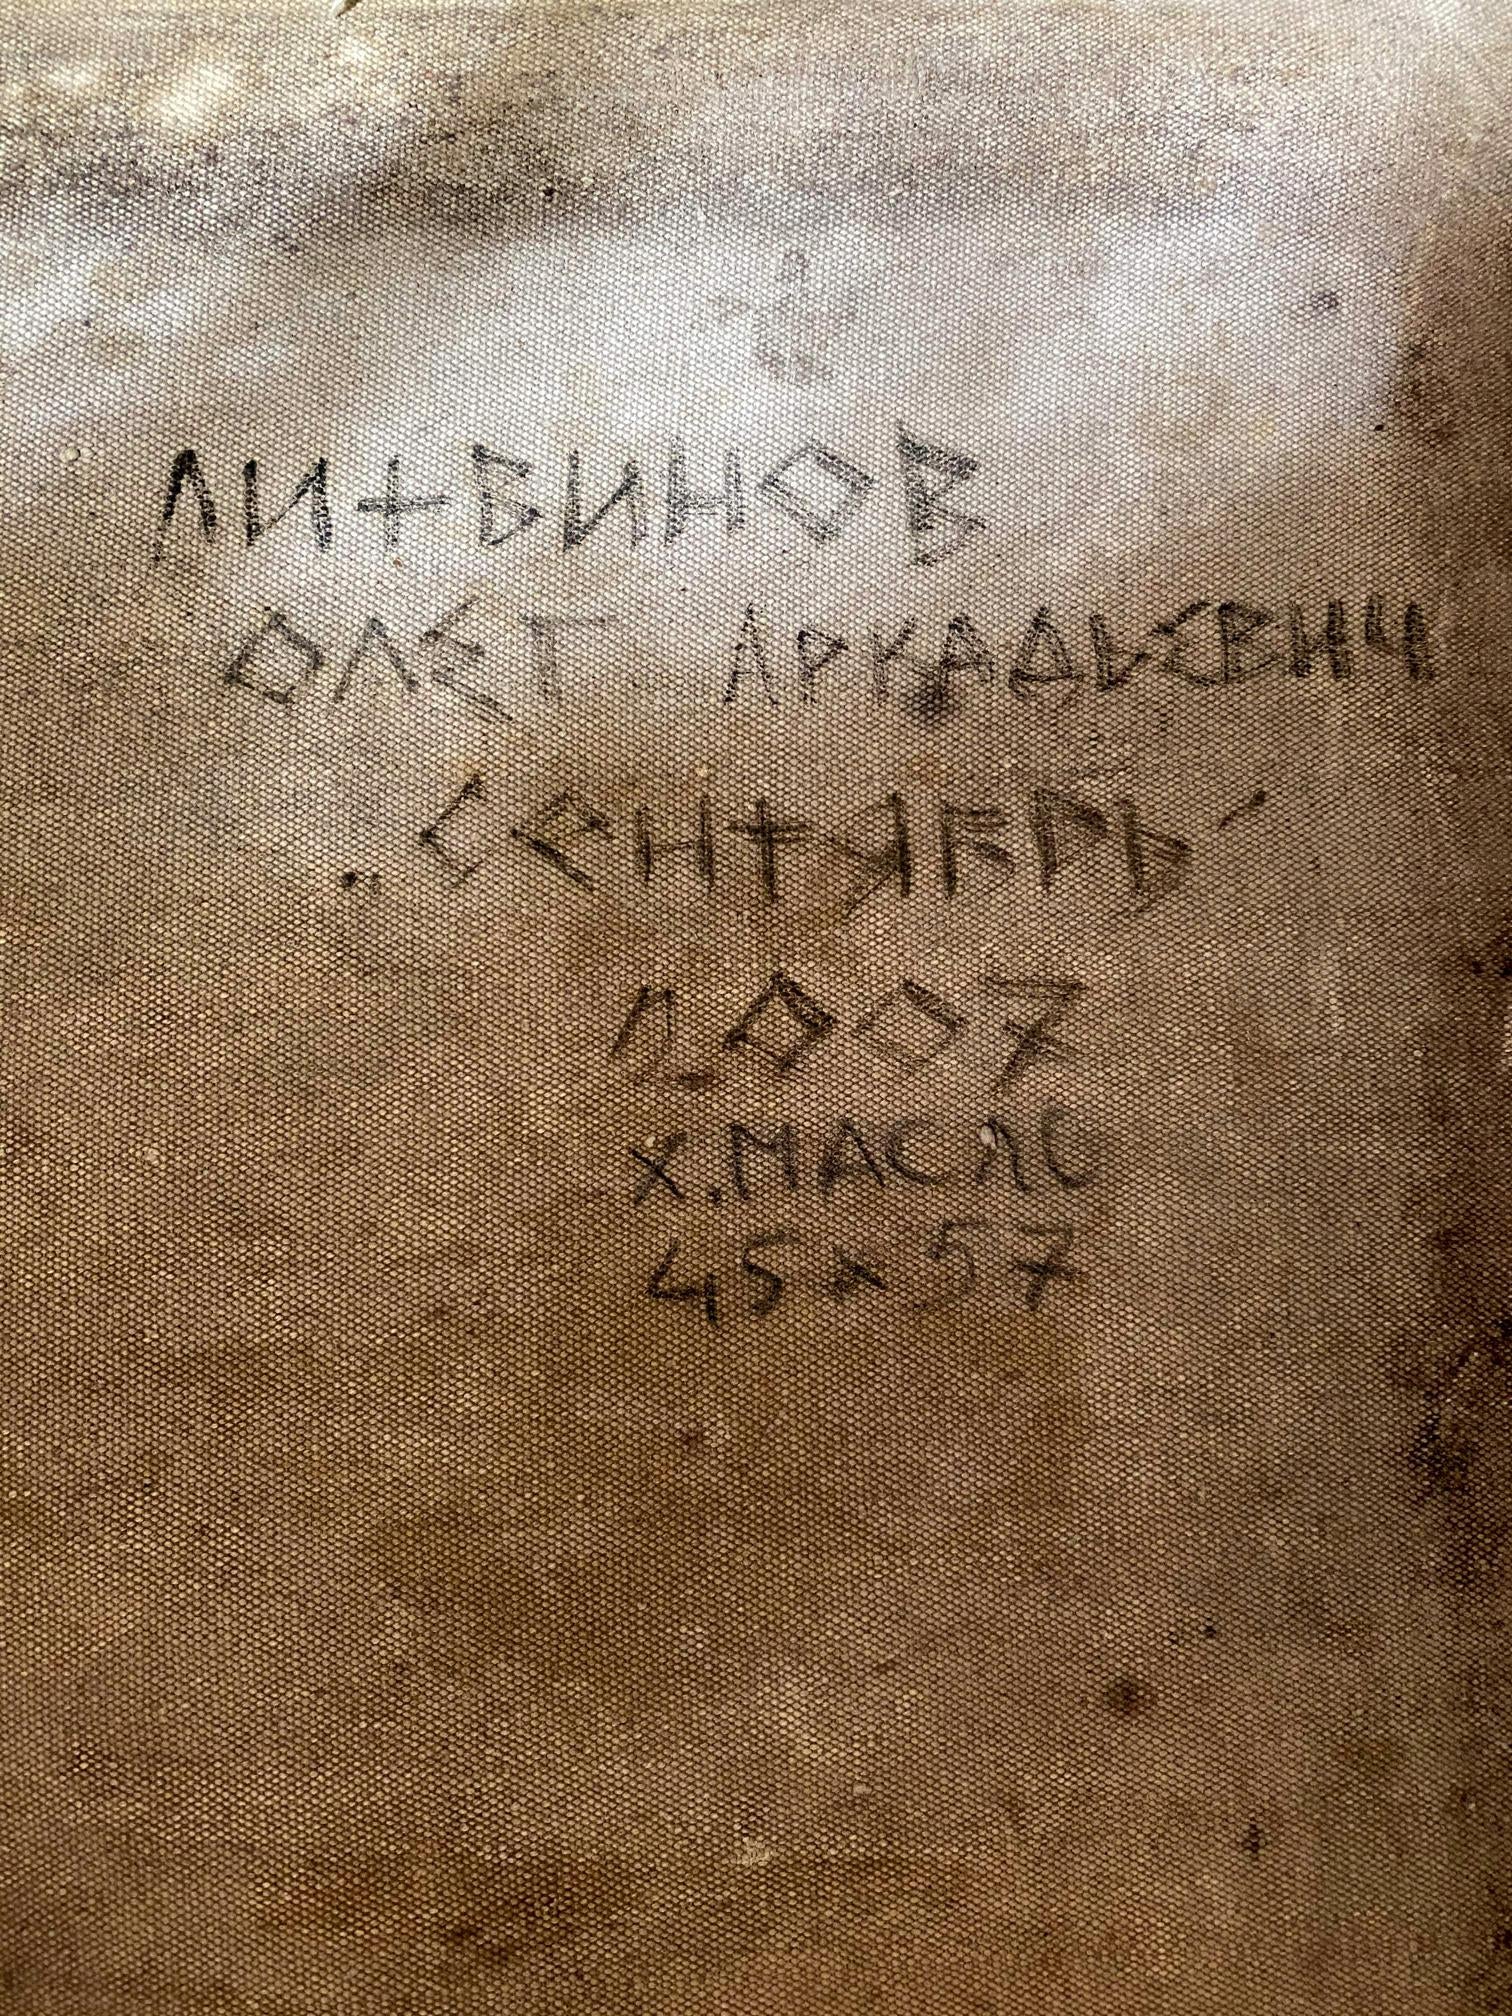 ЛИТВИНОВ
ОЛЕГ АРКАДЬЕВИЧ
„СЕНТЯБРЬ"
2007
Х.МАСЛО
45х57